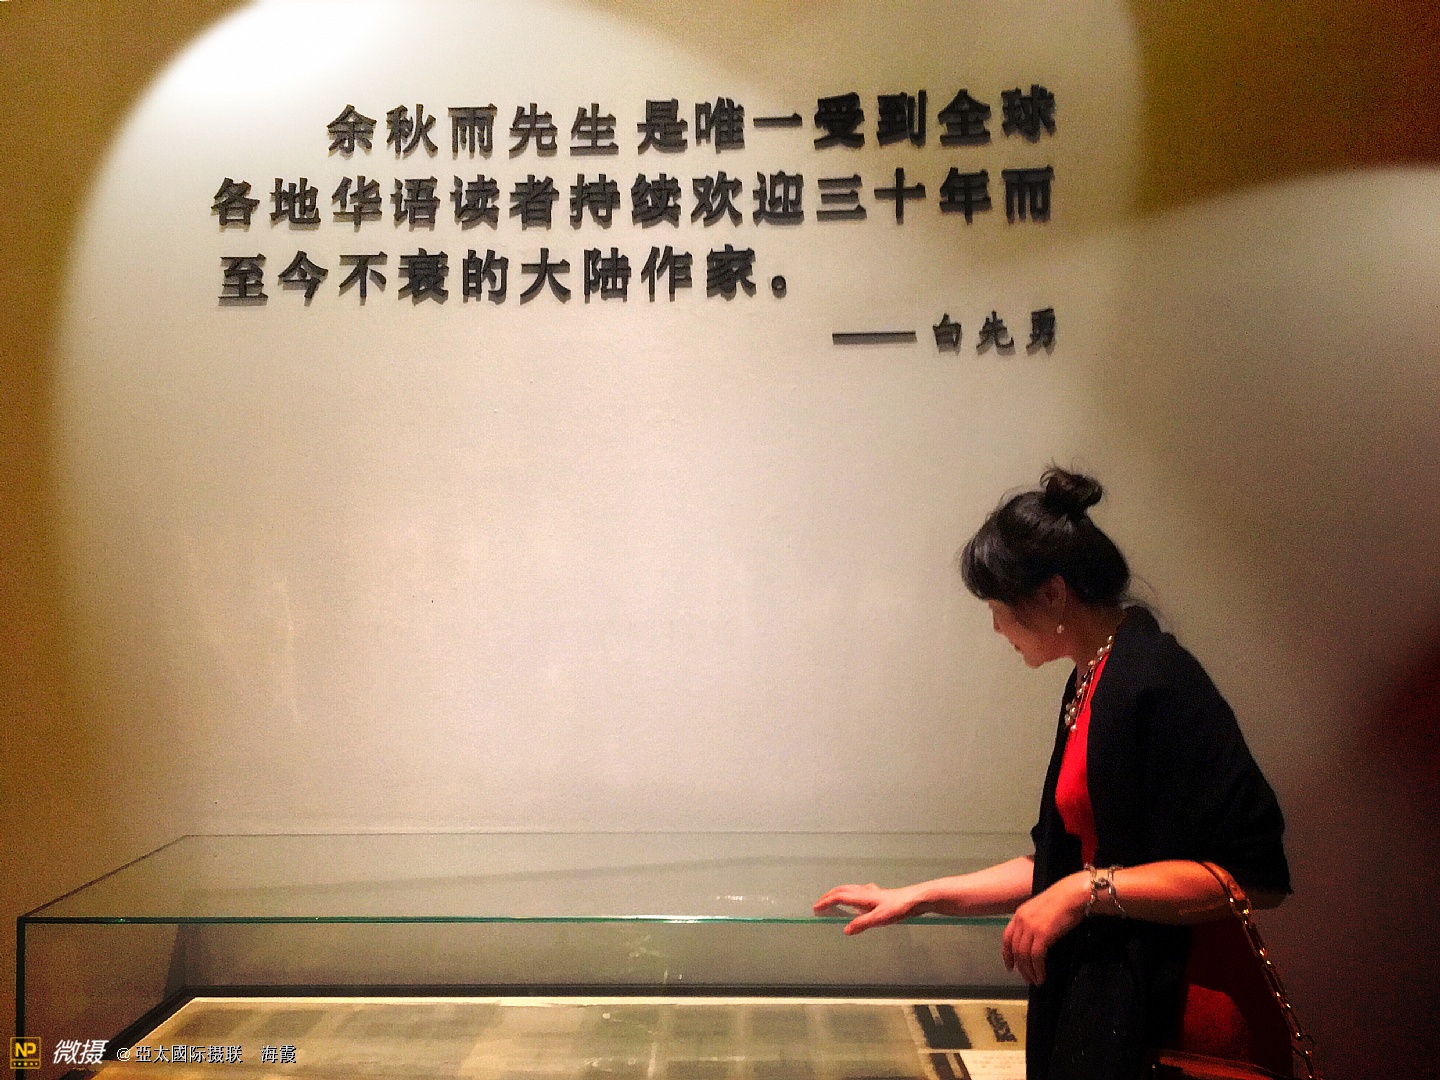 余秋雨先生是唯一受到全球
各地华语读者持续欢迎三十年而
至今不衰的大陆作家。
——白先勇
NP 微摄 @亞太國际摄联 海霞